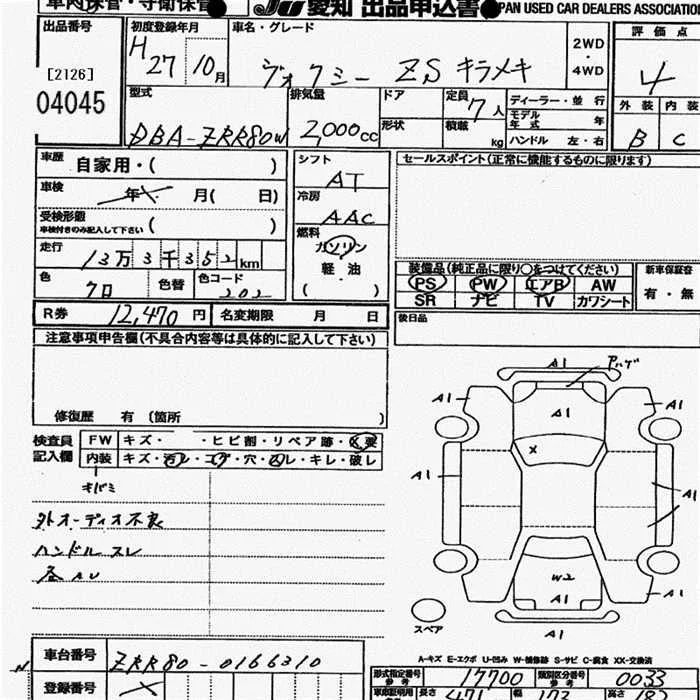 車内保管・守衛保管
JU愛知 出品申込書
JAPAN USED CAR DEALERS ASSOCIATION
出品番号
[2126]
04045
初度登録年月
H27 10月
車名・グレード
ヴォクシー ZS キラメキ
2WD
・
4WD
評価点
4
外装 内装
B C
型式
DBA-ZRR80W
排気量
2,000cc
ドア
形状
定員 7人
積載 kg
ディーラー・並行
モデル年式 年
ハンドル 左・右
車歴 自家用・( )
車検 年 月( 日)
受検形態
車検付きのみ記入して下さい ( )
走行 13万3千352km
色 クロ 色替 色コード 202
シフト
AT
冷房
AAC
燃料
ガソリン
軽油
( )
セールスポイント(正常に機能するものに限ります)
装備品(純正品に限り○をつけてください)
PS PW エアB AW
SR ナビ TV カワシート
新車保証書
有・無
後日品
R券 12,470円 名変期限 月 日
注意事項申告欄(不具合内容等は具体的に記入して下さい)
修復歴 有 (箇所 )
検査員記入欄
FW キズ・ ・ヒビ割・リペア跡・X要
内装 キズ・汚レ・コゲ・穴・スレ・キレ・破レ
キバミ
外オーディオ不良
ハンドル スレ
各AU
A1 Pハゲ
A1 A1 A1
X
A1 A1
W2
A1 A1
A1
スペア
A-キズ E-エクボ U-凹み W-補修跡 S-サビ C-腐食 XX-交換済
車台番号 ZRR80-0166310
登録番号
型式指定番号参考 17700 類別区分番号参考 0033
車庫証明用 長さ 471 幅 173 高さ 182